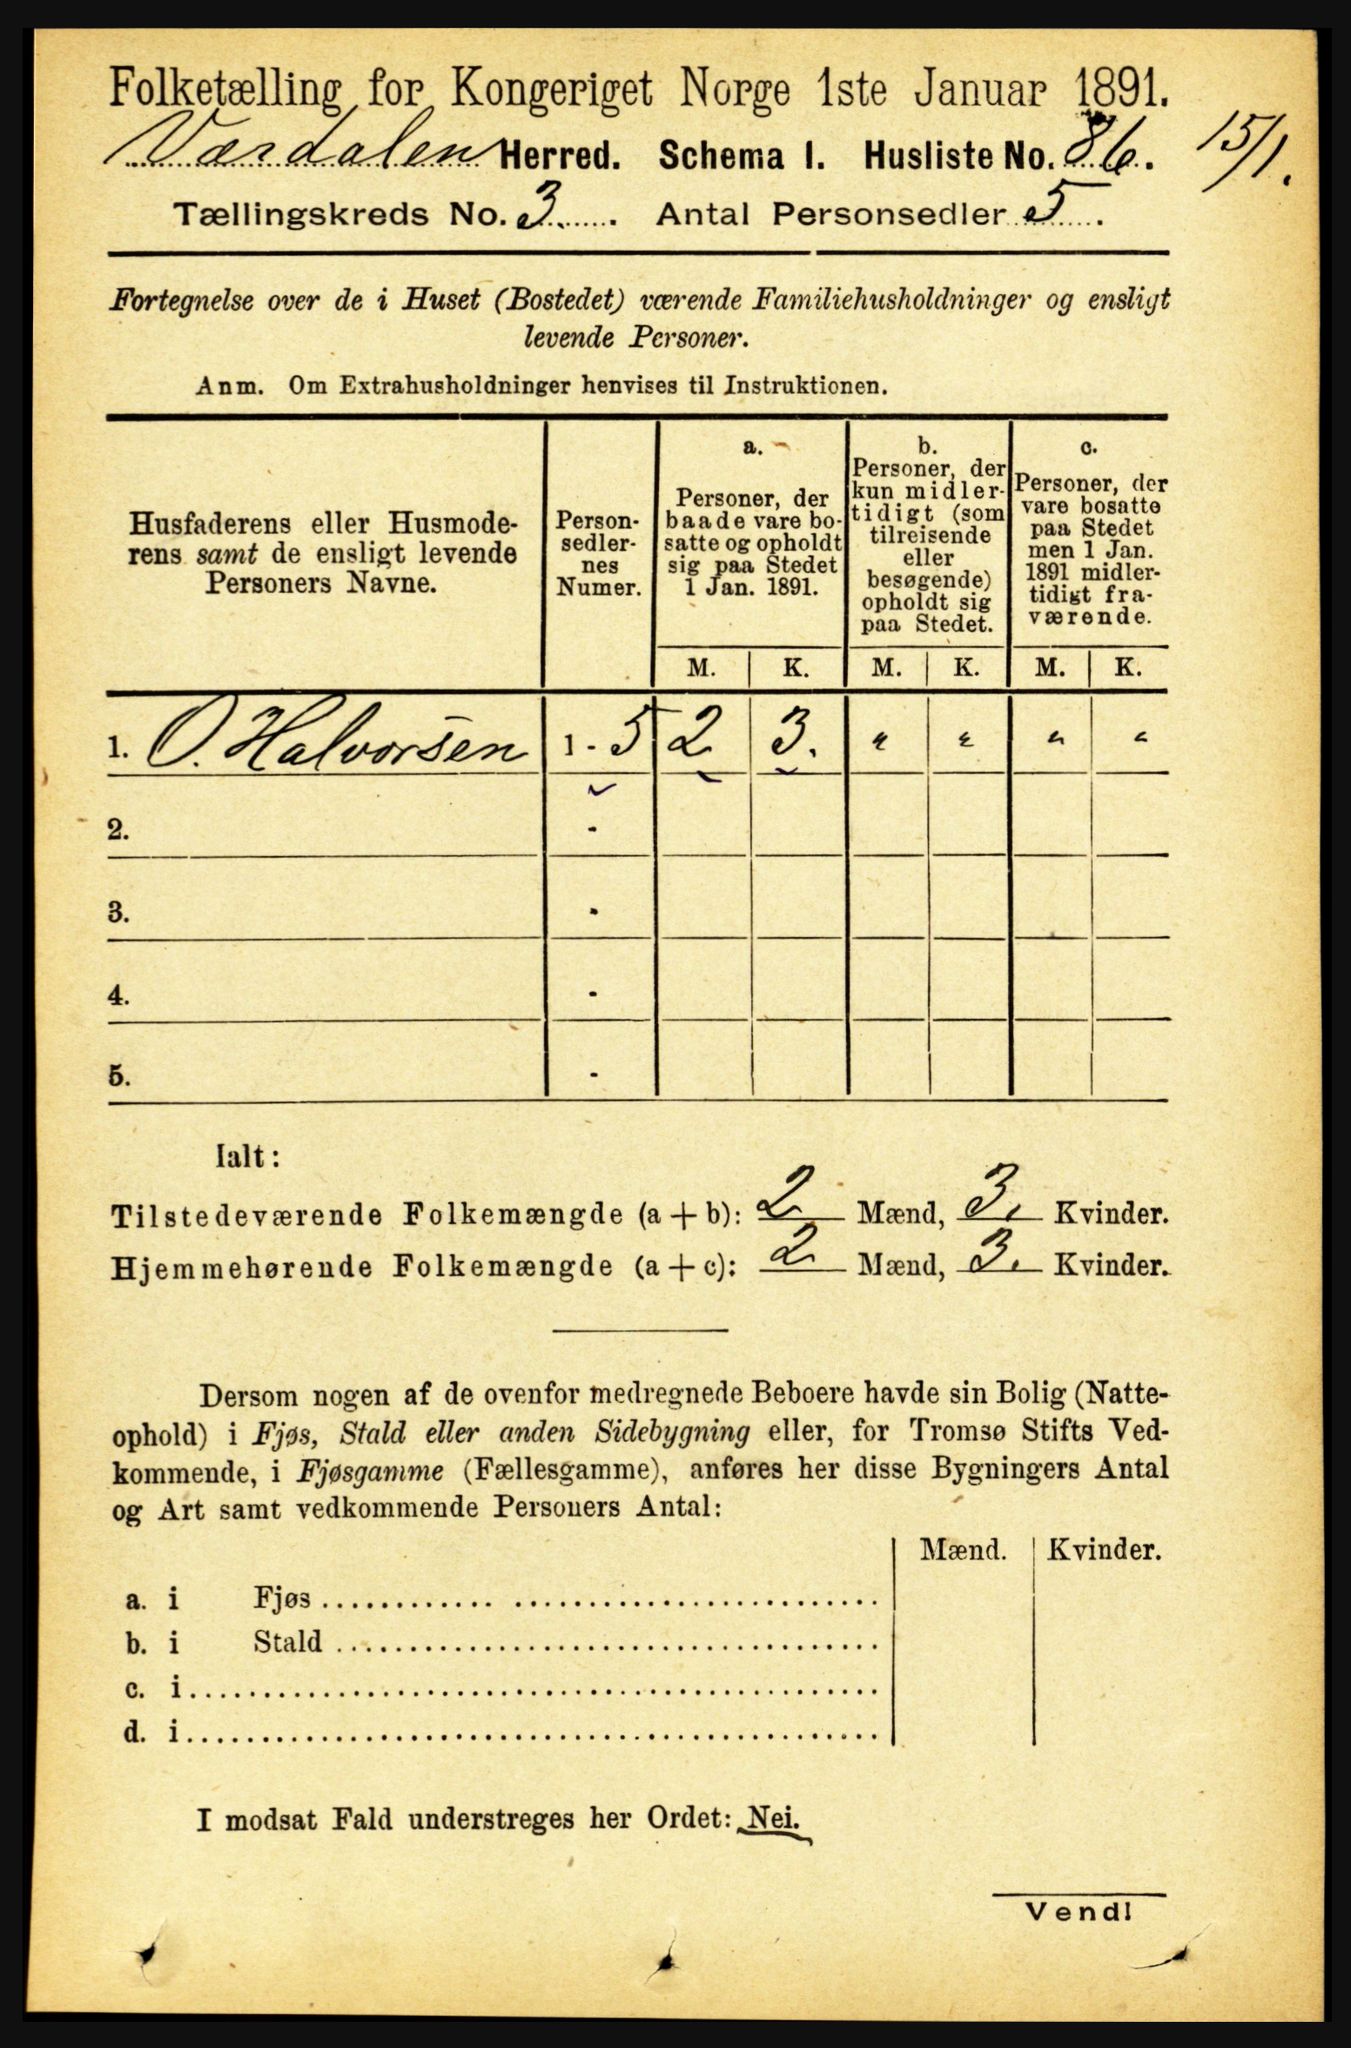 Folketælling for Kongeriget Norge 1ste Januar 1891.
Værdalen Herred. Schema I. Husliste No. 86. 15/1.
Tællingskreds No. 3. Antal Personsedler 5.
Fortegnelse over de i Huset (Bostedet) værende Familiehusholdninger og ensligt
levende Personer.
Anm. Om Extrahusholdninger henvises til Instruktionen.
Husfaderens eller Husmode-
rens samt de ensligt levende
Personers Navne.
Person-
sedler-
nes
Numer.
a.
Personer, der
baade vare bo-
satte og opholdt
sig paa Stedet
1 Jan. 1891.
b.
Personer, der
kun midler-
tidigt (som
tilreisende
eller
besøgende)
opholdt sig
paa Stedet.
c.
Personer, der
vare bosatte
paa Stedet
men 1 Jan.
1891 midler-
tidigt fra-
værende.
M. K. M. K. M. K.
1. O. Halvorsen 1 - 5 2 3. " " " "
2. -
3. -
4. -
5. -
Ialt:
Tilstedeværende Folkemængde (a + b): 2 Mænd, 3. Kvinder.
Hjemmehørende Folkemængde (a + c): 2 Mænd, 3. Kvinder.
Dersom nogen af de ovenfor medregnede Beboere havde sin Bolig (Natte-
ophold) i Fjøs, Stald eller anden Sidebygning eller, for Tromsø Stifts Ved-
kommende, i Fjøsgamme (Fællesgamme), anføres her disse Bygningers Antal
og Art samt vedkommende Personers Antal:
Mænd. Kvinder.
a. i Fjøs
b. i Stald
c. i
d. i
I modsat Fald understreges her Ordet: Nei.
Vend!